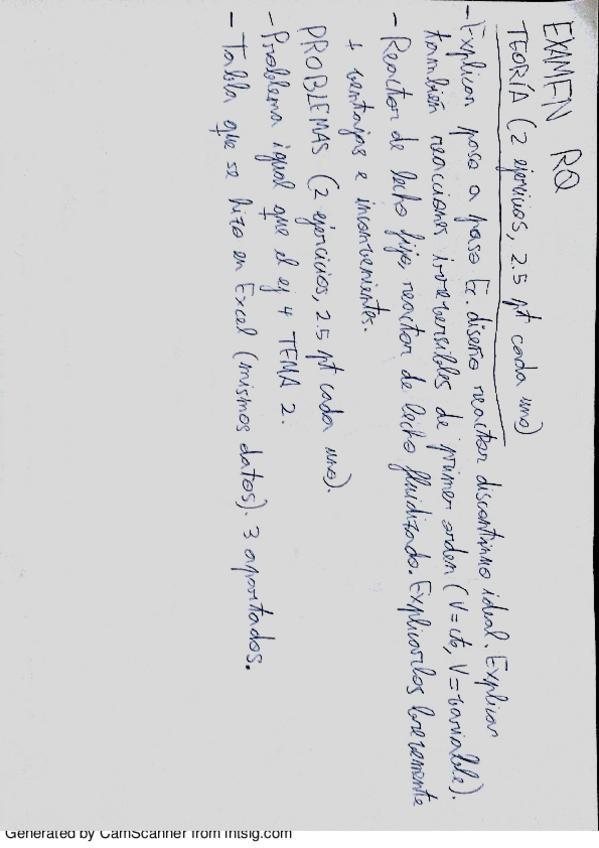 EXAMEN RQ
TEORÍA (2 ejercicios, 2.5 pt cada uno)
- Explicar paso a paso Ec. diseño reactor discontinuo ideal. Explicar
también reacciones irreversibles de primer orden (V=cte, V=variable).
- Reactor de lecho fijo, reactor de lecho fluidizado. Explicarlos brevemente
+ ventajas e inconvenientes.
PROBLEMAS (2 ejercicios, 2.5 pt cada uno).
- Problema igual que el ej 4 TEMA 2.
- Tabla que se hizo en Excel (mismos datos). 3 apartados.
Generated by CamScanner from intsig.com